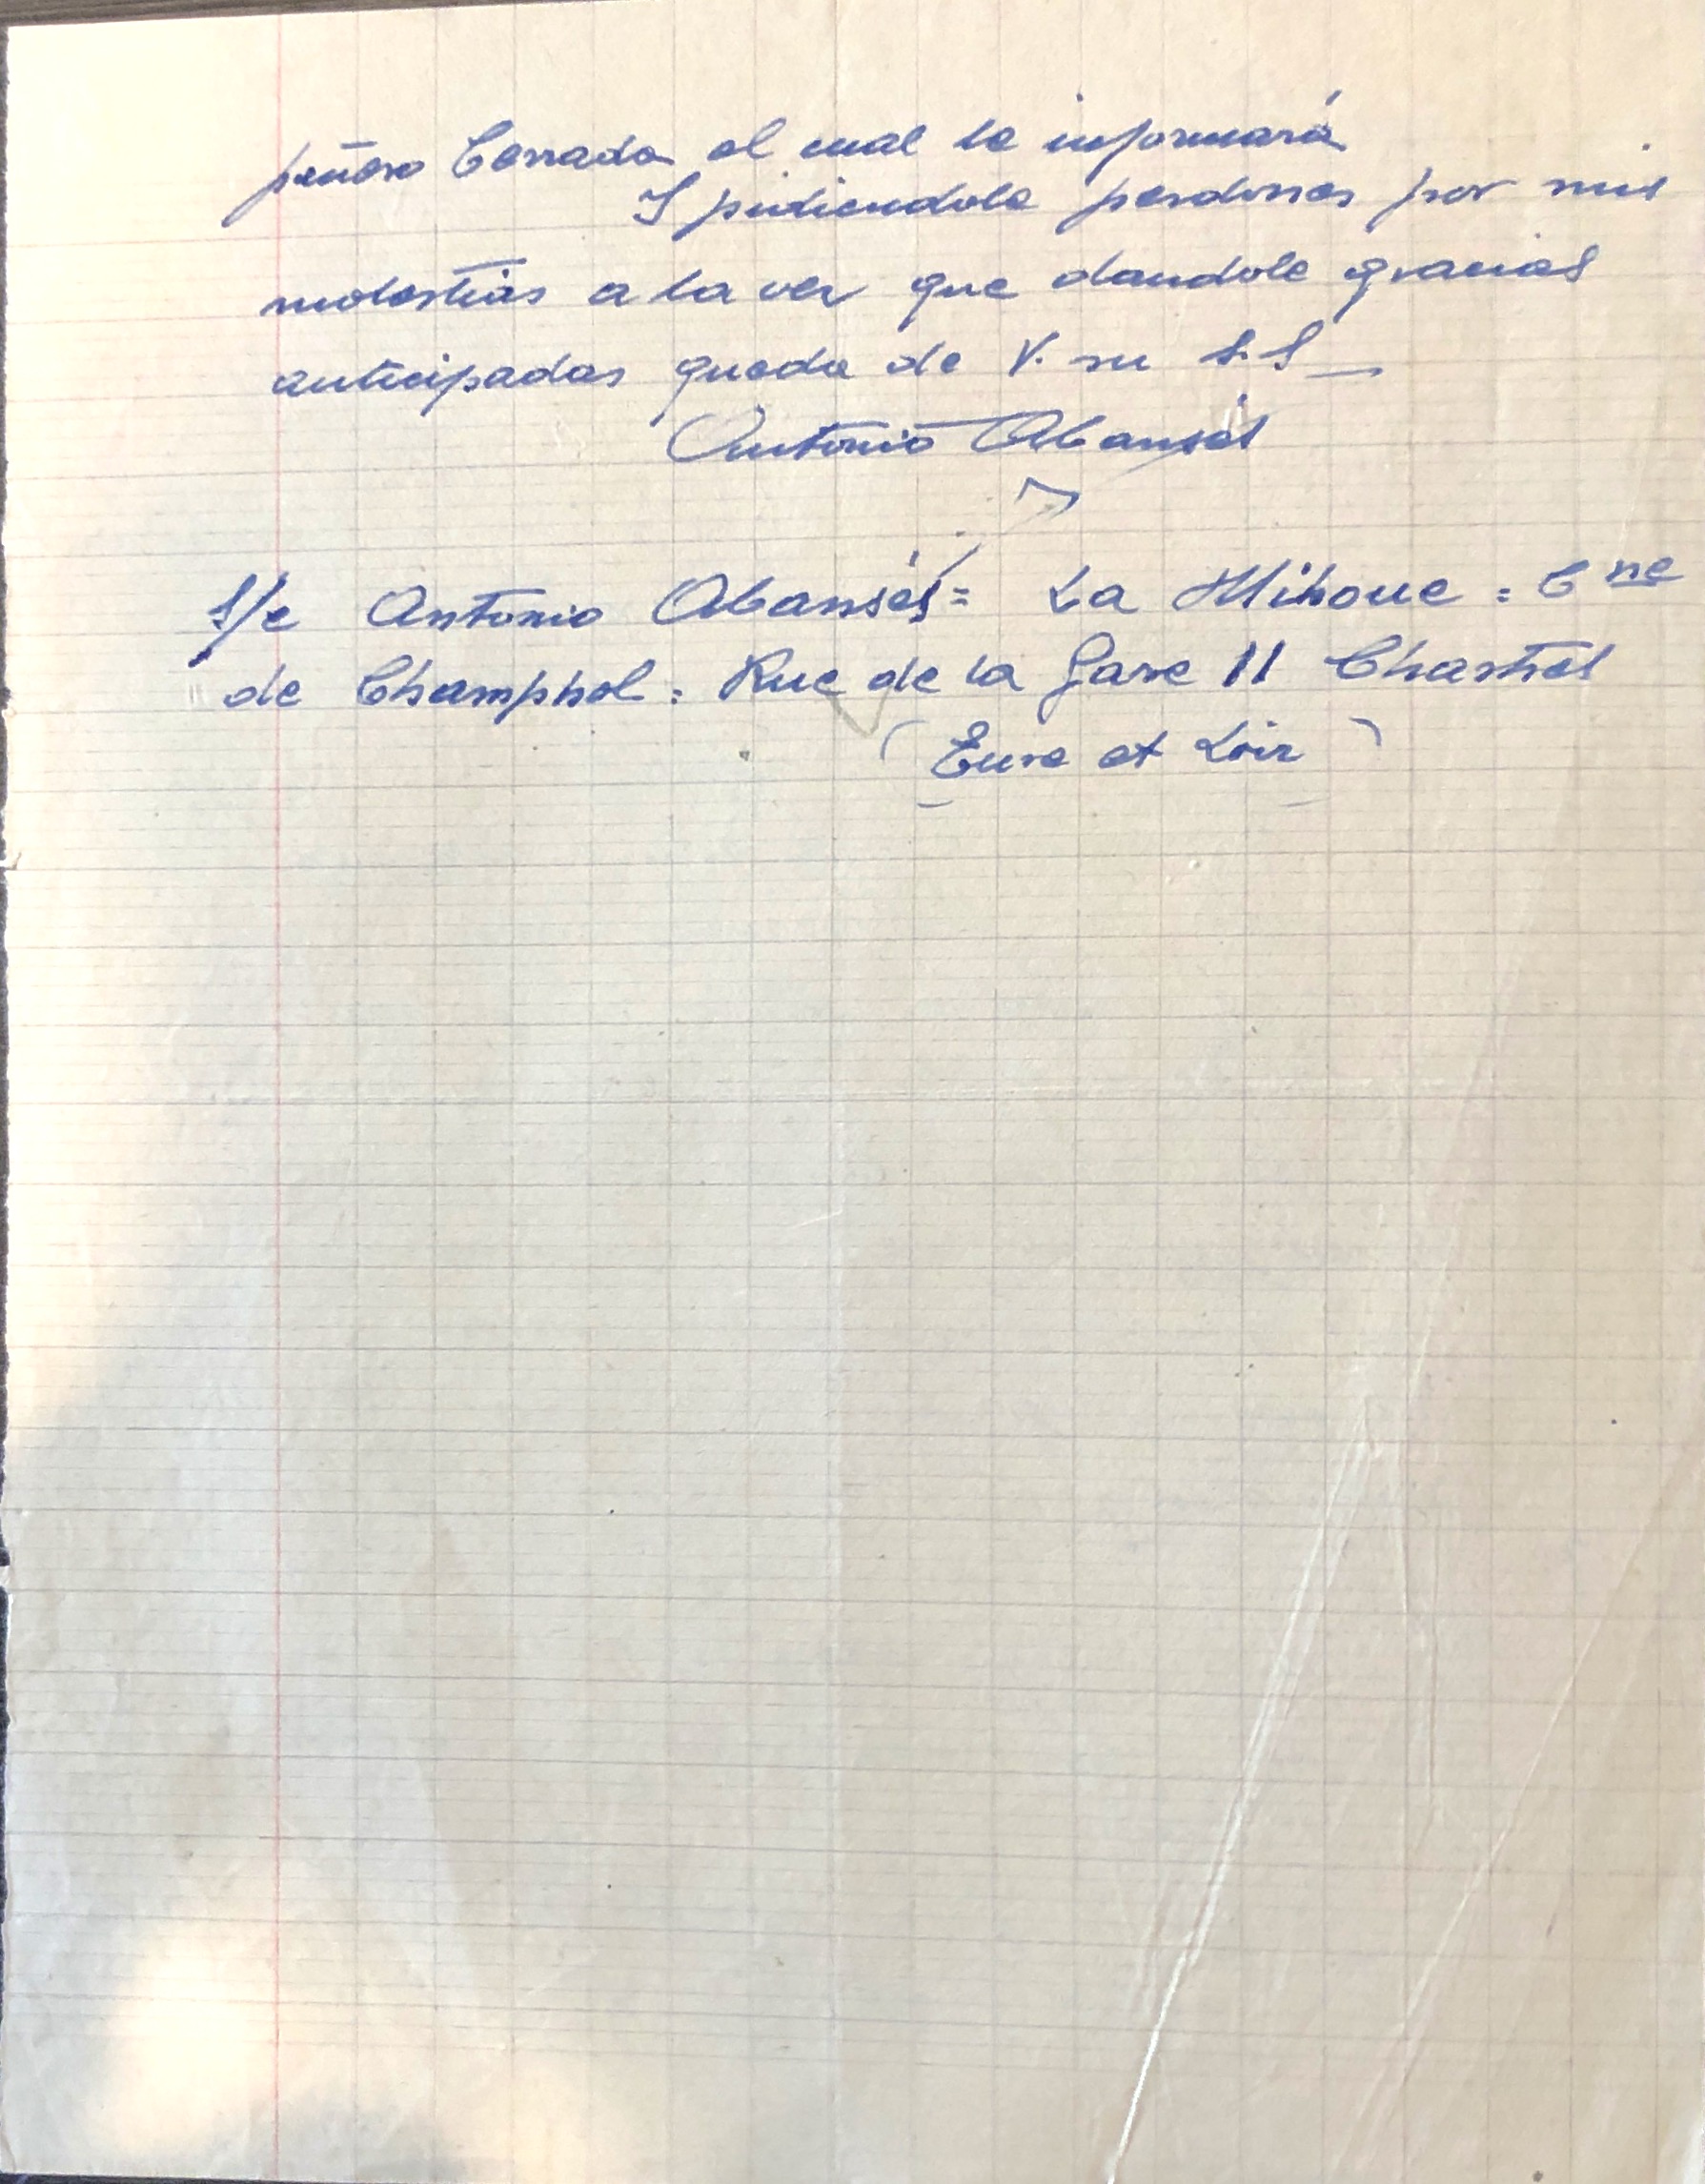 peñero Cerrada el cual le informará
Y pidiendole perdones por mis
molestias a la vez que dandole gracias
anticipadas queda de V. su S.S
Antonio Abansés
S/c Antonio Abansés = La Mihoue = Cne
de Champhol = Rue de la Gare 11 Chartres
(Eure et Loir)